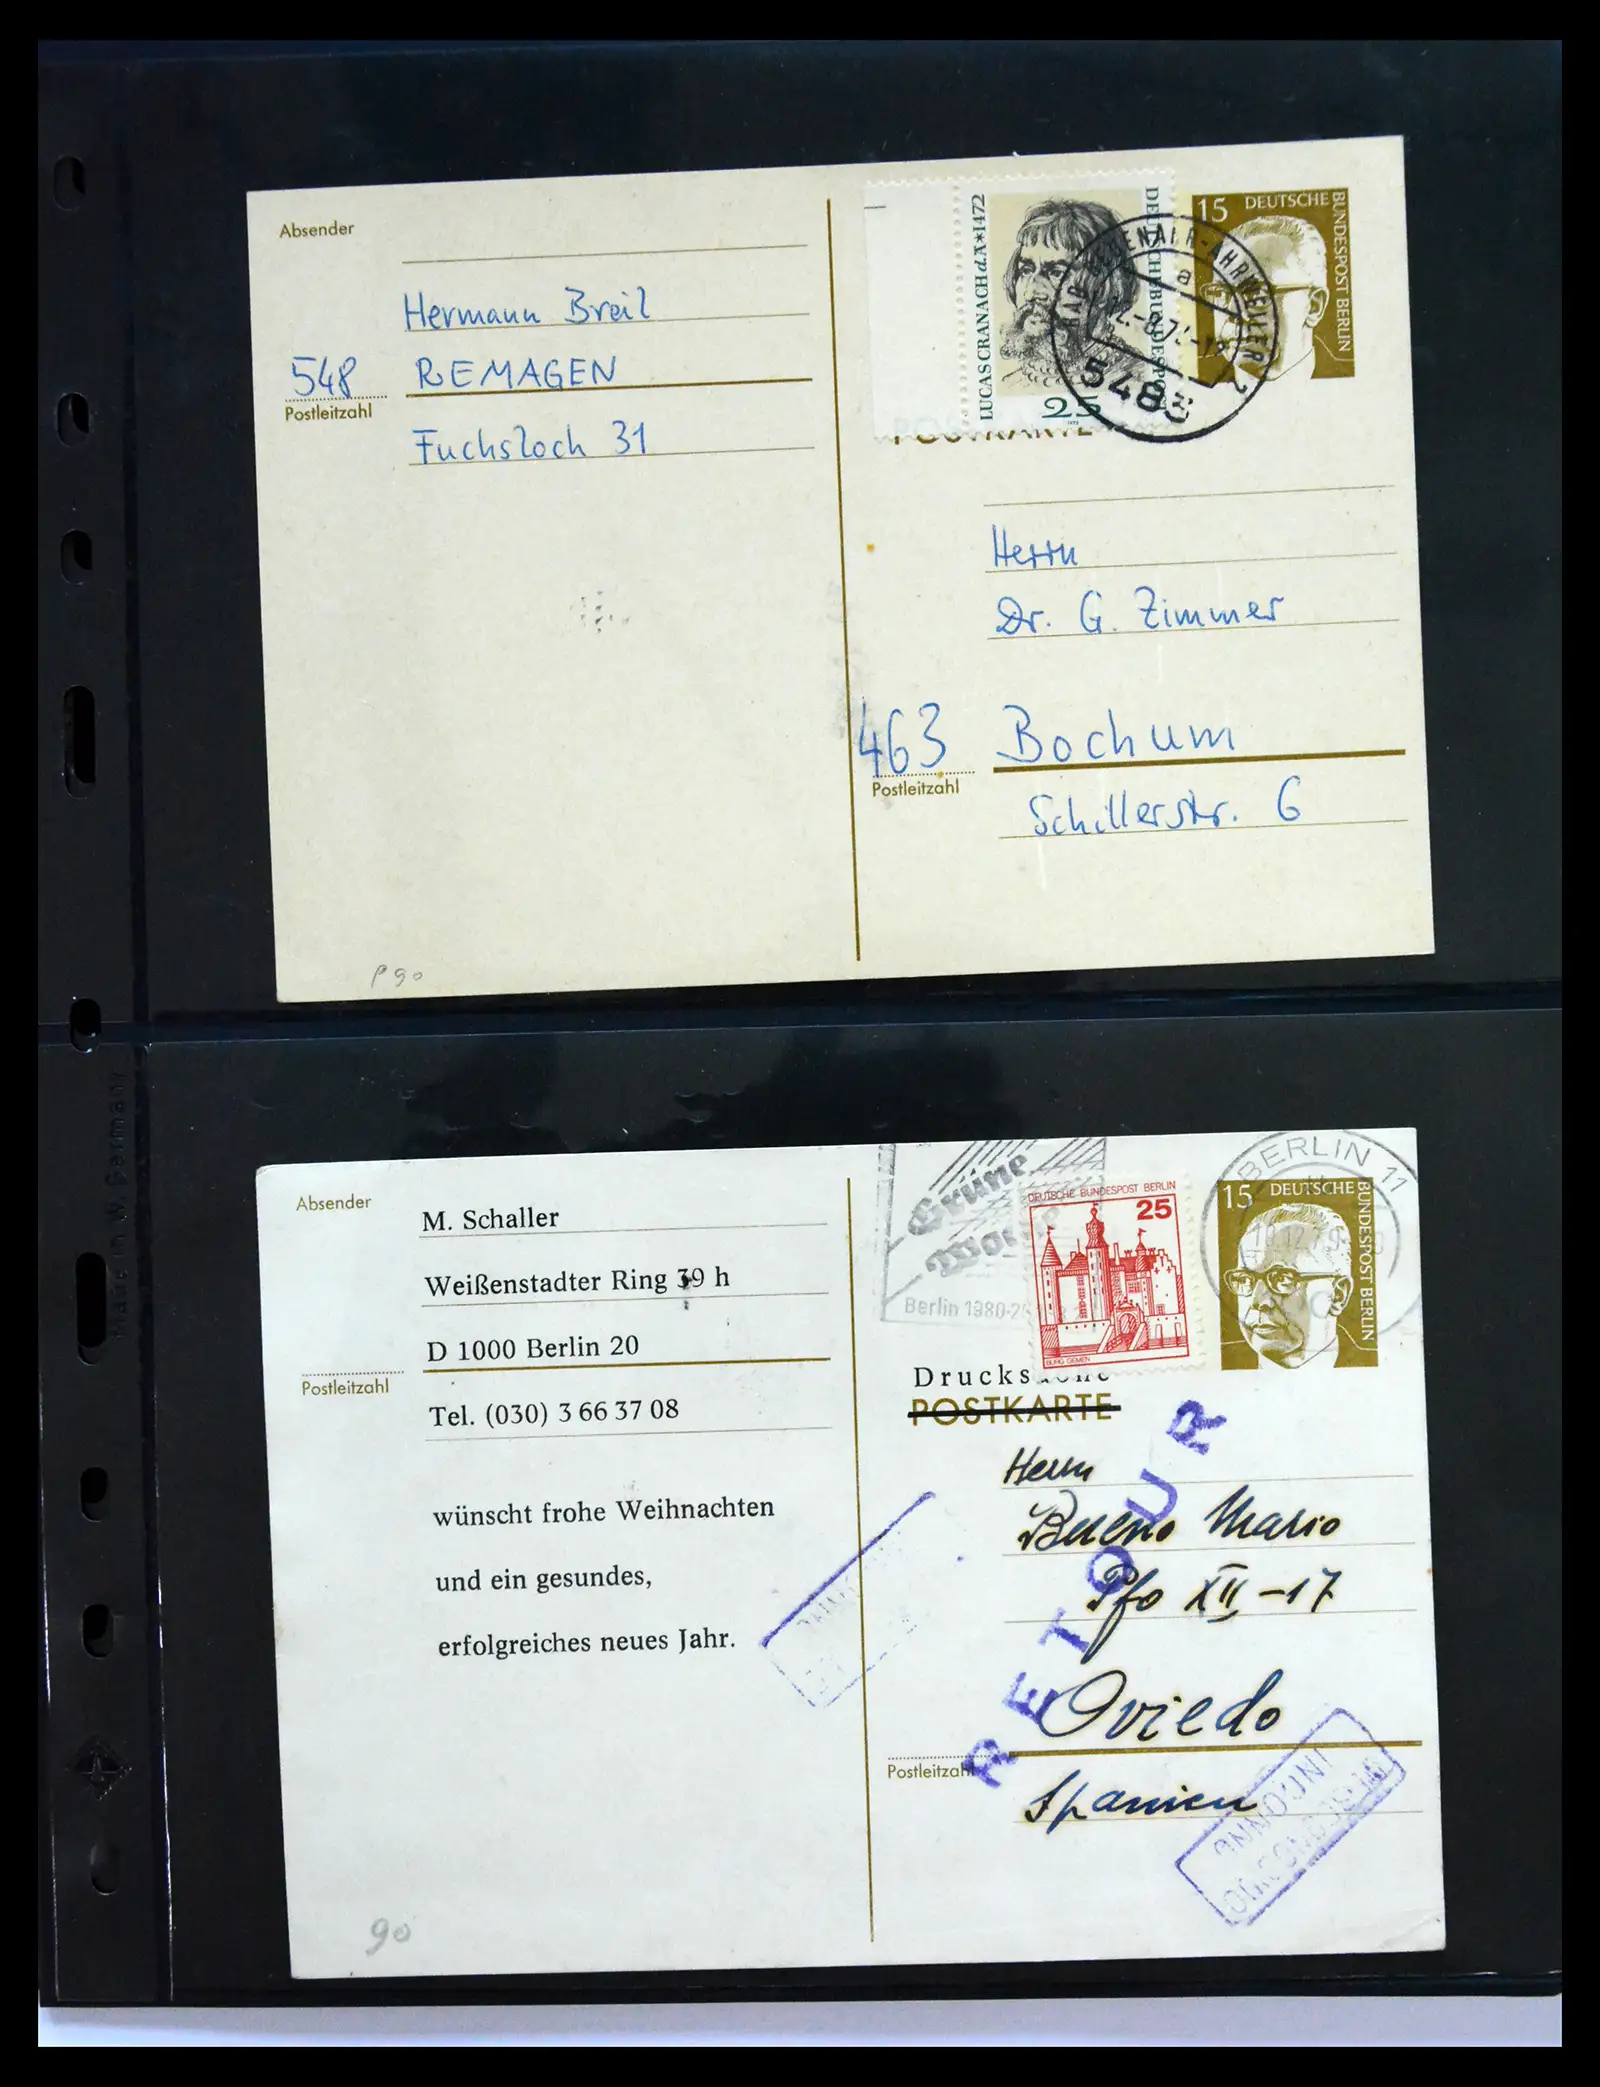 Absender
Hermann Breil
548 REMAGEN
Postleitzahl
Fuchsloch 31
LUCAS CRANACH d.Ä*1472
DEUTSCHE BUNDESPOST
25
1972
15 DEUTSCHE
BUNDESPOST BERLIN
BAD NEUENAHR-AHRWEILER 2
a
5483
POSTKARTE
Herrn
Dr. G. Zimmer
463 Bochum
Postleitzahl
Schillerstr. 6
P 90
Made in W. Germany
Absender
M. Schaller
Weißenstadter Ring 39 h
D 1000 Berlin 20
Postleitzahl
Tel. (030) 3 66 37 08
wünscht frohe Weihnachten
und ein gesundes,
erfolgreiches neues Jahr.
Grüne
Woche
Berlin 1980
DEUTSCHE BUNDESPOST BERLIN
25
BURG GEMEN
BERLIN 11
15 DEUTSCHE
BUNDESPOST BERLIN
Drucksache
POSTKARTE
RETOUR
Herrn
Bueno Mario
Pfo XII-17
Oviedo
Postleitzahl
Spanien
INCONNU
DESCONOCIDO
90